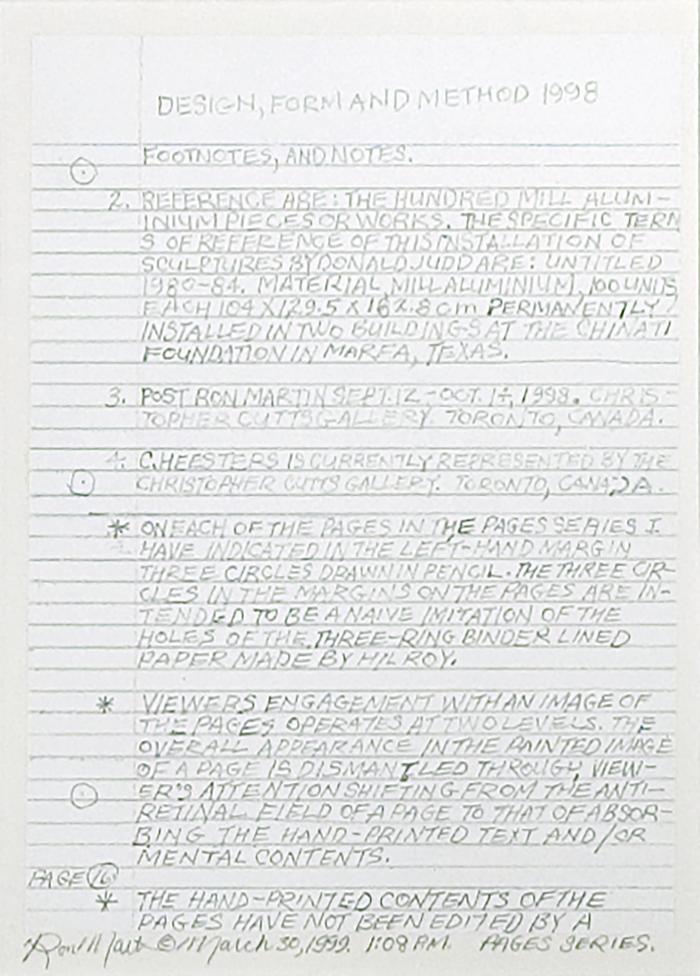 DESIGN, FORM AND METHOD 1998
FOOTNOTES, AND NOTES.
2. REFERENCE ARE: THE HUNDRED MILL ALUM-
INIUM PIECES OR WORKS. THE SPECIFIC TERM
S OF REFERENCE OF THIS INSTALLATION OF
SCULPTURES BY DONALD JUDD ARE: UNTITLED
1980-84. MATERIAL, MILL ALUMINIUM, 100 UNITS
EACH 104 X 129.5 X 182.8 cm PERMANENTLY
INSTALLED IN TWO BUILDINGS AT THE CHINATI
FOUNDATION IN MARFA, TEXAS.
3. POST RON MARTIN SEPT. 12 - OCT. 1998. CHRIS-
TOPHER CUTTS GALLERY TORONTO, CANADA.
4. C. HEESTERS IS CURRENTLY REPRESENTED BY THE
CHRISTOPHER CUTTS GALLERY. TORONTO, CANADA.
* ON EACH OF THE PAGES IN THE PAGES SERIES I
HAVE INDICATED IN THE LEFT-HAND MARGIN
THREE CIRCLES DRAWN IN PENCIL. THE THREE CIR-
CLES IN THE MARGINS ON THE PAGES ARE IN-
TENDED TO BE A NAIVE IMITATION OF THE
HOLES OF THE THREE-RING BINDER LINED
PAPER MADE BY HILROY.
* VIEWERS ENGAGEMENT WITH AN IMAGE OF
THE PAGES OPERATES AT TWO LEVELS. THE
OVERALL APPEARANCE IN THE PAINTED IMAGE
OF A PAGE IS DISMANTLED THROUGH, VIEW-
ER'S ATTENTION SHIFTING FROM THE ANTI-
RETINAL FIELD OF A PAGE TO THAT OF ABSOR-
BING THE HAND-PRINTED TEXT AND/OR
MENTAL CONTENTS.
PAGE 16
* THE HAND-PRINTED CONTENTS OF THE
PAGES HAVE NOT BEEN EDITED BY A
Ron Mart © March 30, 1999. 1:08 P.M. PAGES SERIES.